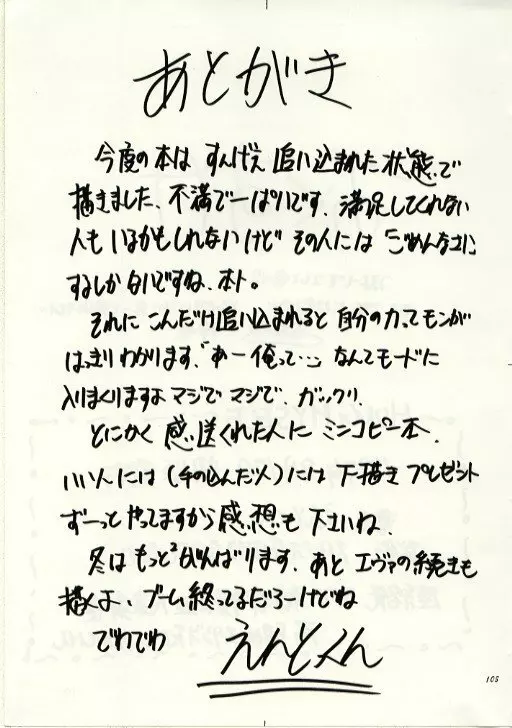 あとがき
今度の本は すんげえ 追い込まれた状態で
描きました、不満で一ぱいです、満足してくれない
人も いるかもしれないけど その人には「ごめんなさい」
するしかないですね、ホント。
それに こんだけ追い込まれると 自分の力ってモンが
はっきりわかります、「あー俺って…」なんてモードに
入りまくりますよ マジで マジで、ガックリ、
とにかく 感想送くれた人に ミニコピー本、
いい人には(手の込んだ人)には 下描き プレゼント
ずーっと やってますから 感想も 下さいね、
冬は もっと²がんばります、あと エヴァの続きも
描くよ、ブーム終ってるだろーけどね
でわでわ
えんどくん
105